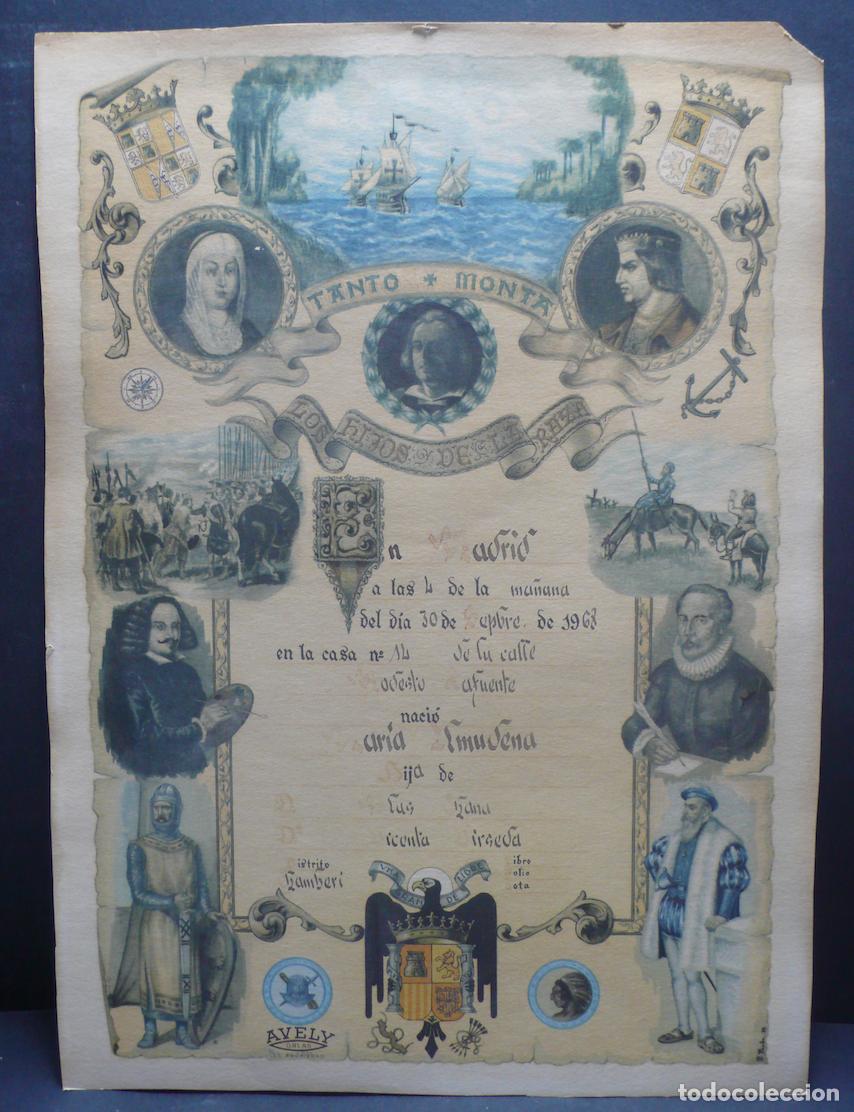 TANTO MONTA
LOS HIJOS DE LA RAZA
En Madrid
a las 4 de la mañana
del día 30 de Sepbre. de 1968
en la casa nº 14 de la calle
Modesto Lafuente
nació
María Almudena
Hija de
D. Blas
Dª Vicenta
Distrito Libro
Chamberí Folio
Nota
UNA GRANDE LIBRE
AVELY
ORLAS
todocoleccion
todocoleccion.net